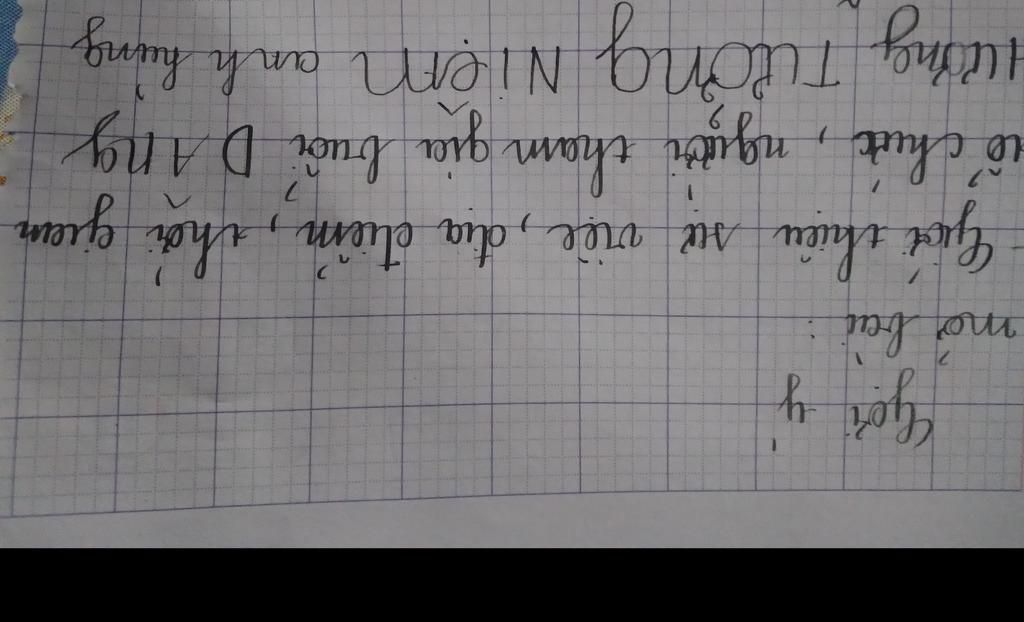 Gợi ý
mở bài :
- Giới thiệu sự việc, địa điểm, thời gian
tổ chức, người tham gia buổi DÂng
Hương Tưởng Niệm anh hùng